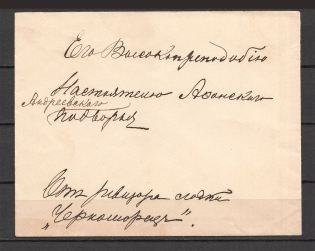 Его Высокопреподобію
Настоятелю Афонскаго
Андреевскаго
подворья
Отъ ревизора
„Черноморецъ".